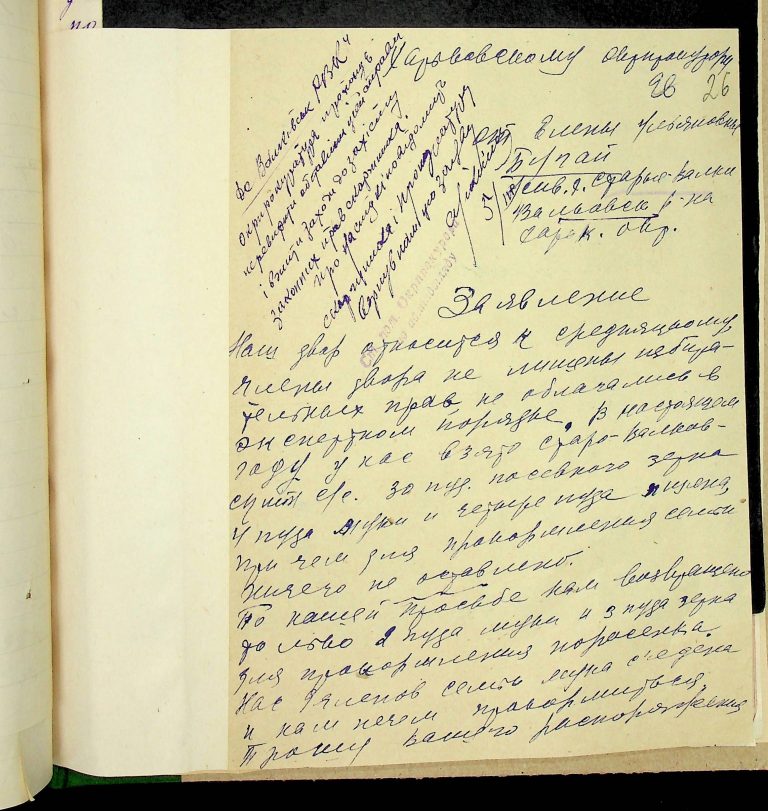 Харьковскому окрпрокурору
26 26
от Елены Ульяновны
Бугай
жив. в с. Старые-Валки
Валковск р-на
Харьк. окр.
До Валківськ РВК
Окрпрокуратура пропонує
перевірити обставини цієї справи
і вжити заходи до захисту
законних прав скаржника.
Про наслідки повідомить
скаржника і Прокуратуру
повернувши нам цю заяву
Заявление
Наш двор относится к средняцкому,
члены двора не лишены избира-
тельных прав не облагались в
экспертном порядке. В настоящем
году у нас взято старо-валков-
ским с/с. 30 пуд. посевного зерна
4 пуда муки и четыре пуда пшена,
при чем для прокормления семьи
ничего не оставлено.
По нашей просьбе нам возвращено
только 2 пуда муки и 3 пуда зерна
для прокормления поросенка.
Нас членов семьи мука съедена
и нам нечем прокормиться,
Прошу Вашего распоряжения